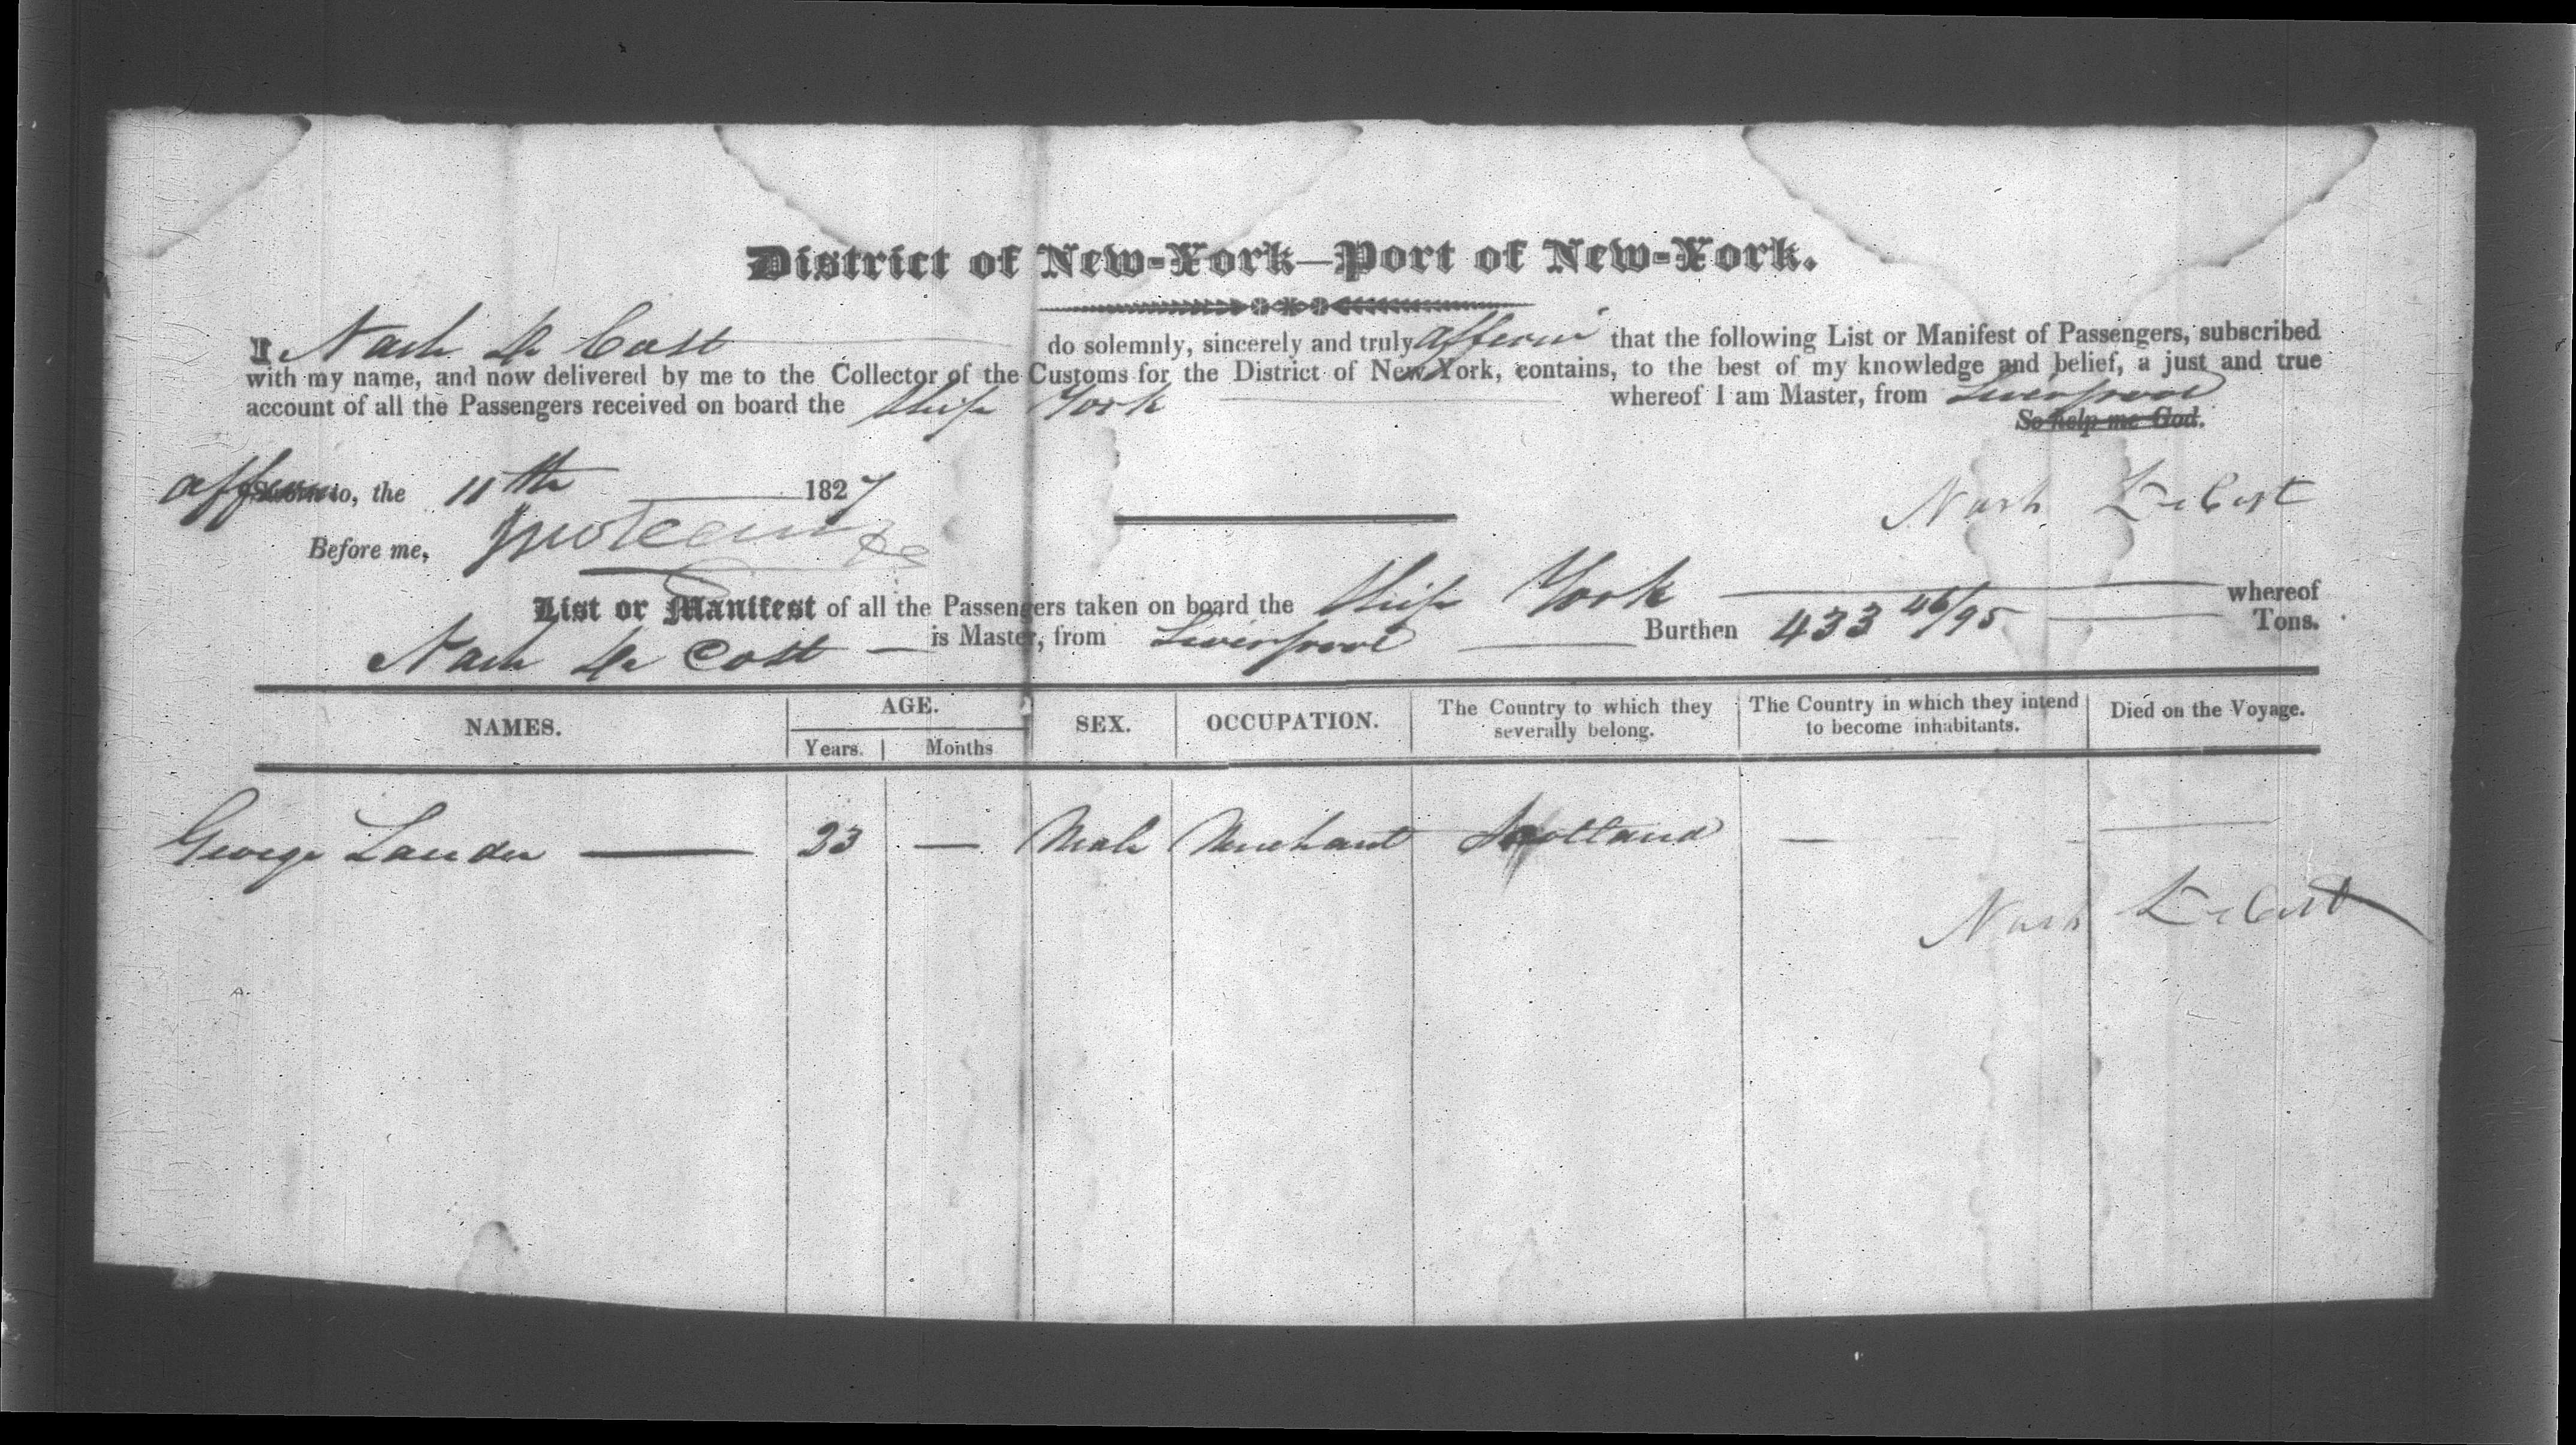 District of New-York—Port of New-York.
I Nash De Cost do solemnly, sincerely and truly affirm that the following List or Manifest of Passengers, subscribed
with my name, and now delivered by me to the Collector of the Customs for the District of New York, contains, to the best of my knowledge and belief, a just and true
account of all the Passengers received on board the Ship York whereof I am Master, from Liverpool
So help me God.
affirm to, the 11th 1827
Nash De Cost
Before me,
List or Manifest of all the Passengers taken on board the Ship York whereof
Nash De Cost is Master, from Liverpool Burthen 433 46/95 Tons.
NAMES. AGE. SEX. OCCUPATION. The Country to which they severally belong. The Country in which they intend to become inhabitants. Died on the Voyage.
Years. Months
George Lauder — 23 — Male Merchant Scotland —
Nash De Cost